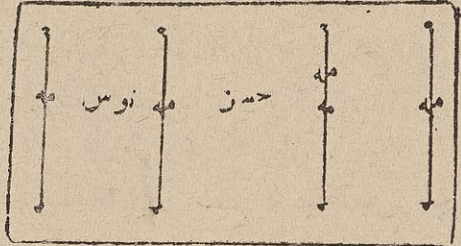 مه
مه مه حسز مه نوس مه